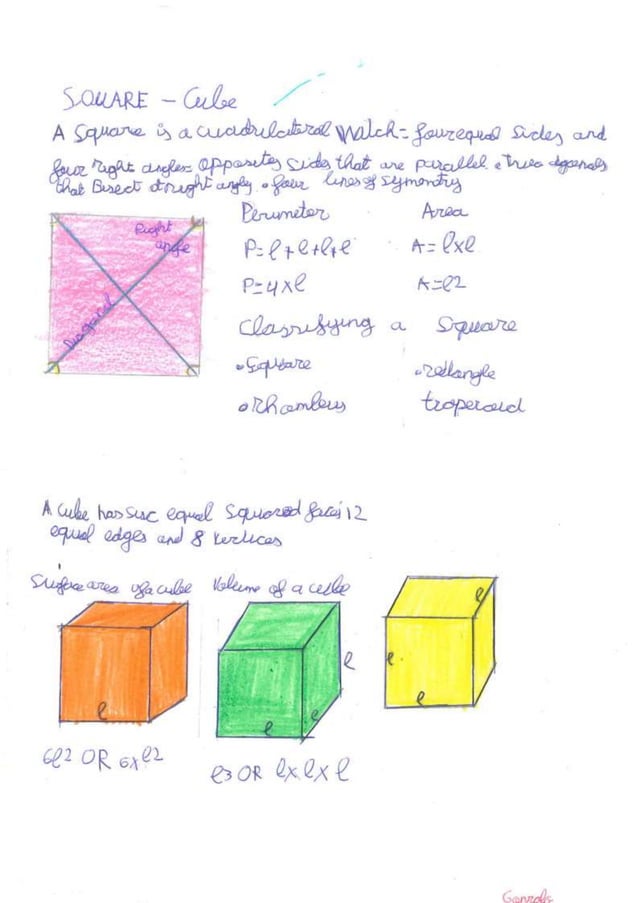 SQUARE - Cube
A Square is a cuadrilateral Watch= four equal Sides and
four right angles= opposites sides that are parallel.
that Bisect at right angly • four lines of Symmontris
Right
angle
Diagonal
Perimeter Area
P=l+l+l+l A=lxl
P=4xl A=l2
Classifying a Square
•Square •rectangle
•Rhombus troperoid
A cube has sisc equal Squared faces 12
equal edges and 8 vertices
Surface area of a cube Volume of a cube
l
l
l
l
l
l
l
6l2 OR 6xl2
l3 OR lxlxl